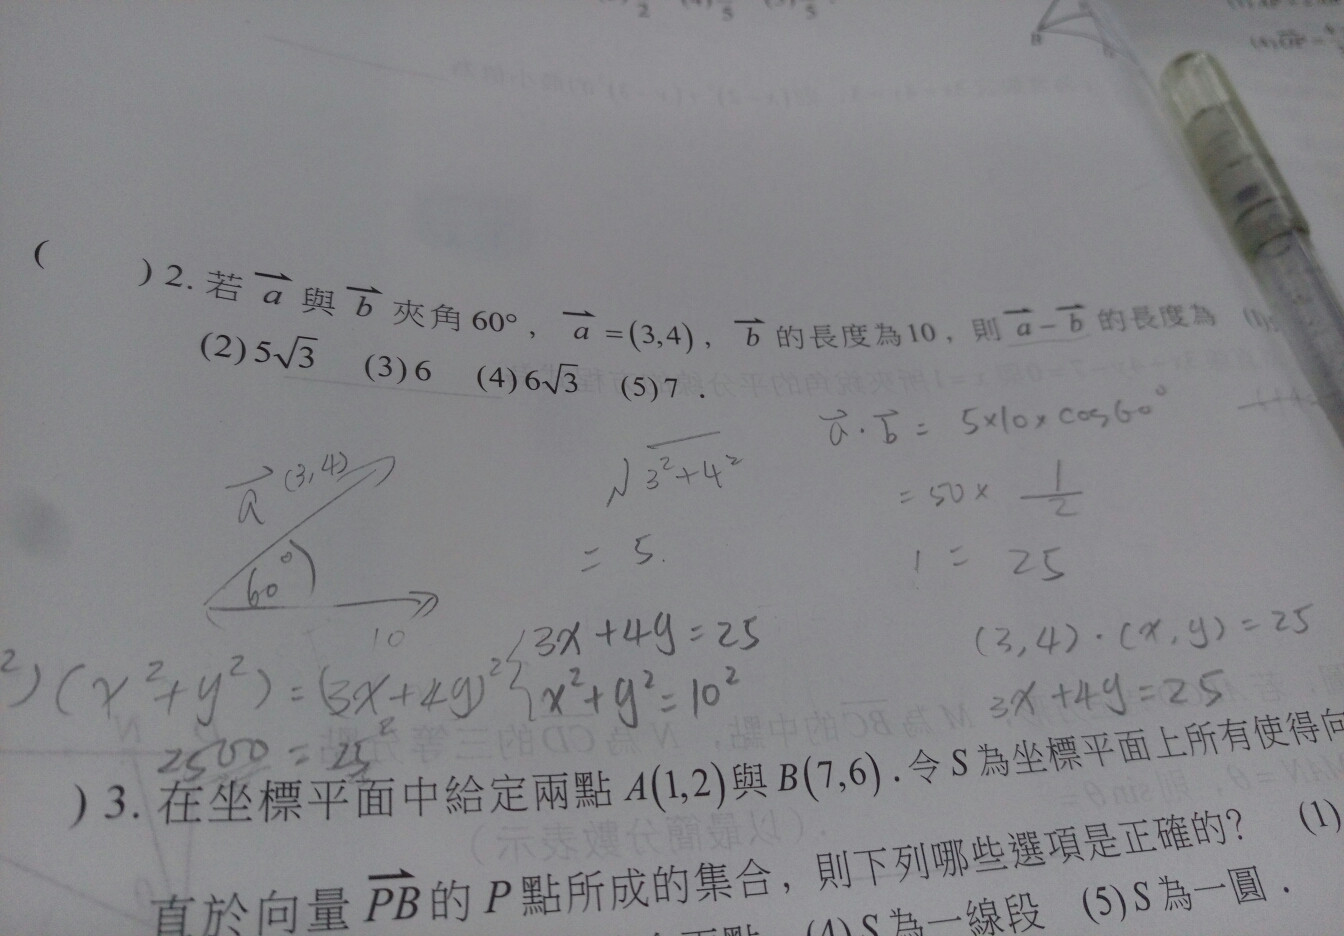 ( ) 2. 若 a 與 b 夾角 60°, a = (3,4), b 的長度為10, 則 a - b 的長度為 (1)
(2) 5√3 (3) 6 (4) 6√3 (5) 7.
a · b = 5×10×cos60°
a (3,4)
√3²+4²
= 50 × 1/2
= 5.
= 25
60°
10
3x+4y=25
(3,4)·(x,y)=25
²)(x²+y²)=(3x+4y)²
x²+y²=10²
3x+4y=25
2500 = 25²
) 3. 在坐標平面中給定兩點 A(1,2)與 B(7,6).令 S 為坐標平面上所有使得向
直於向量 PB 的 P 點所成的集合, 則下列哪些選項是正確的? (1)
(4) S 為一線段 (5) S 為一圓.